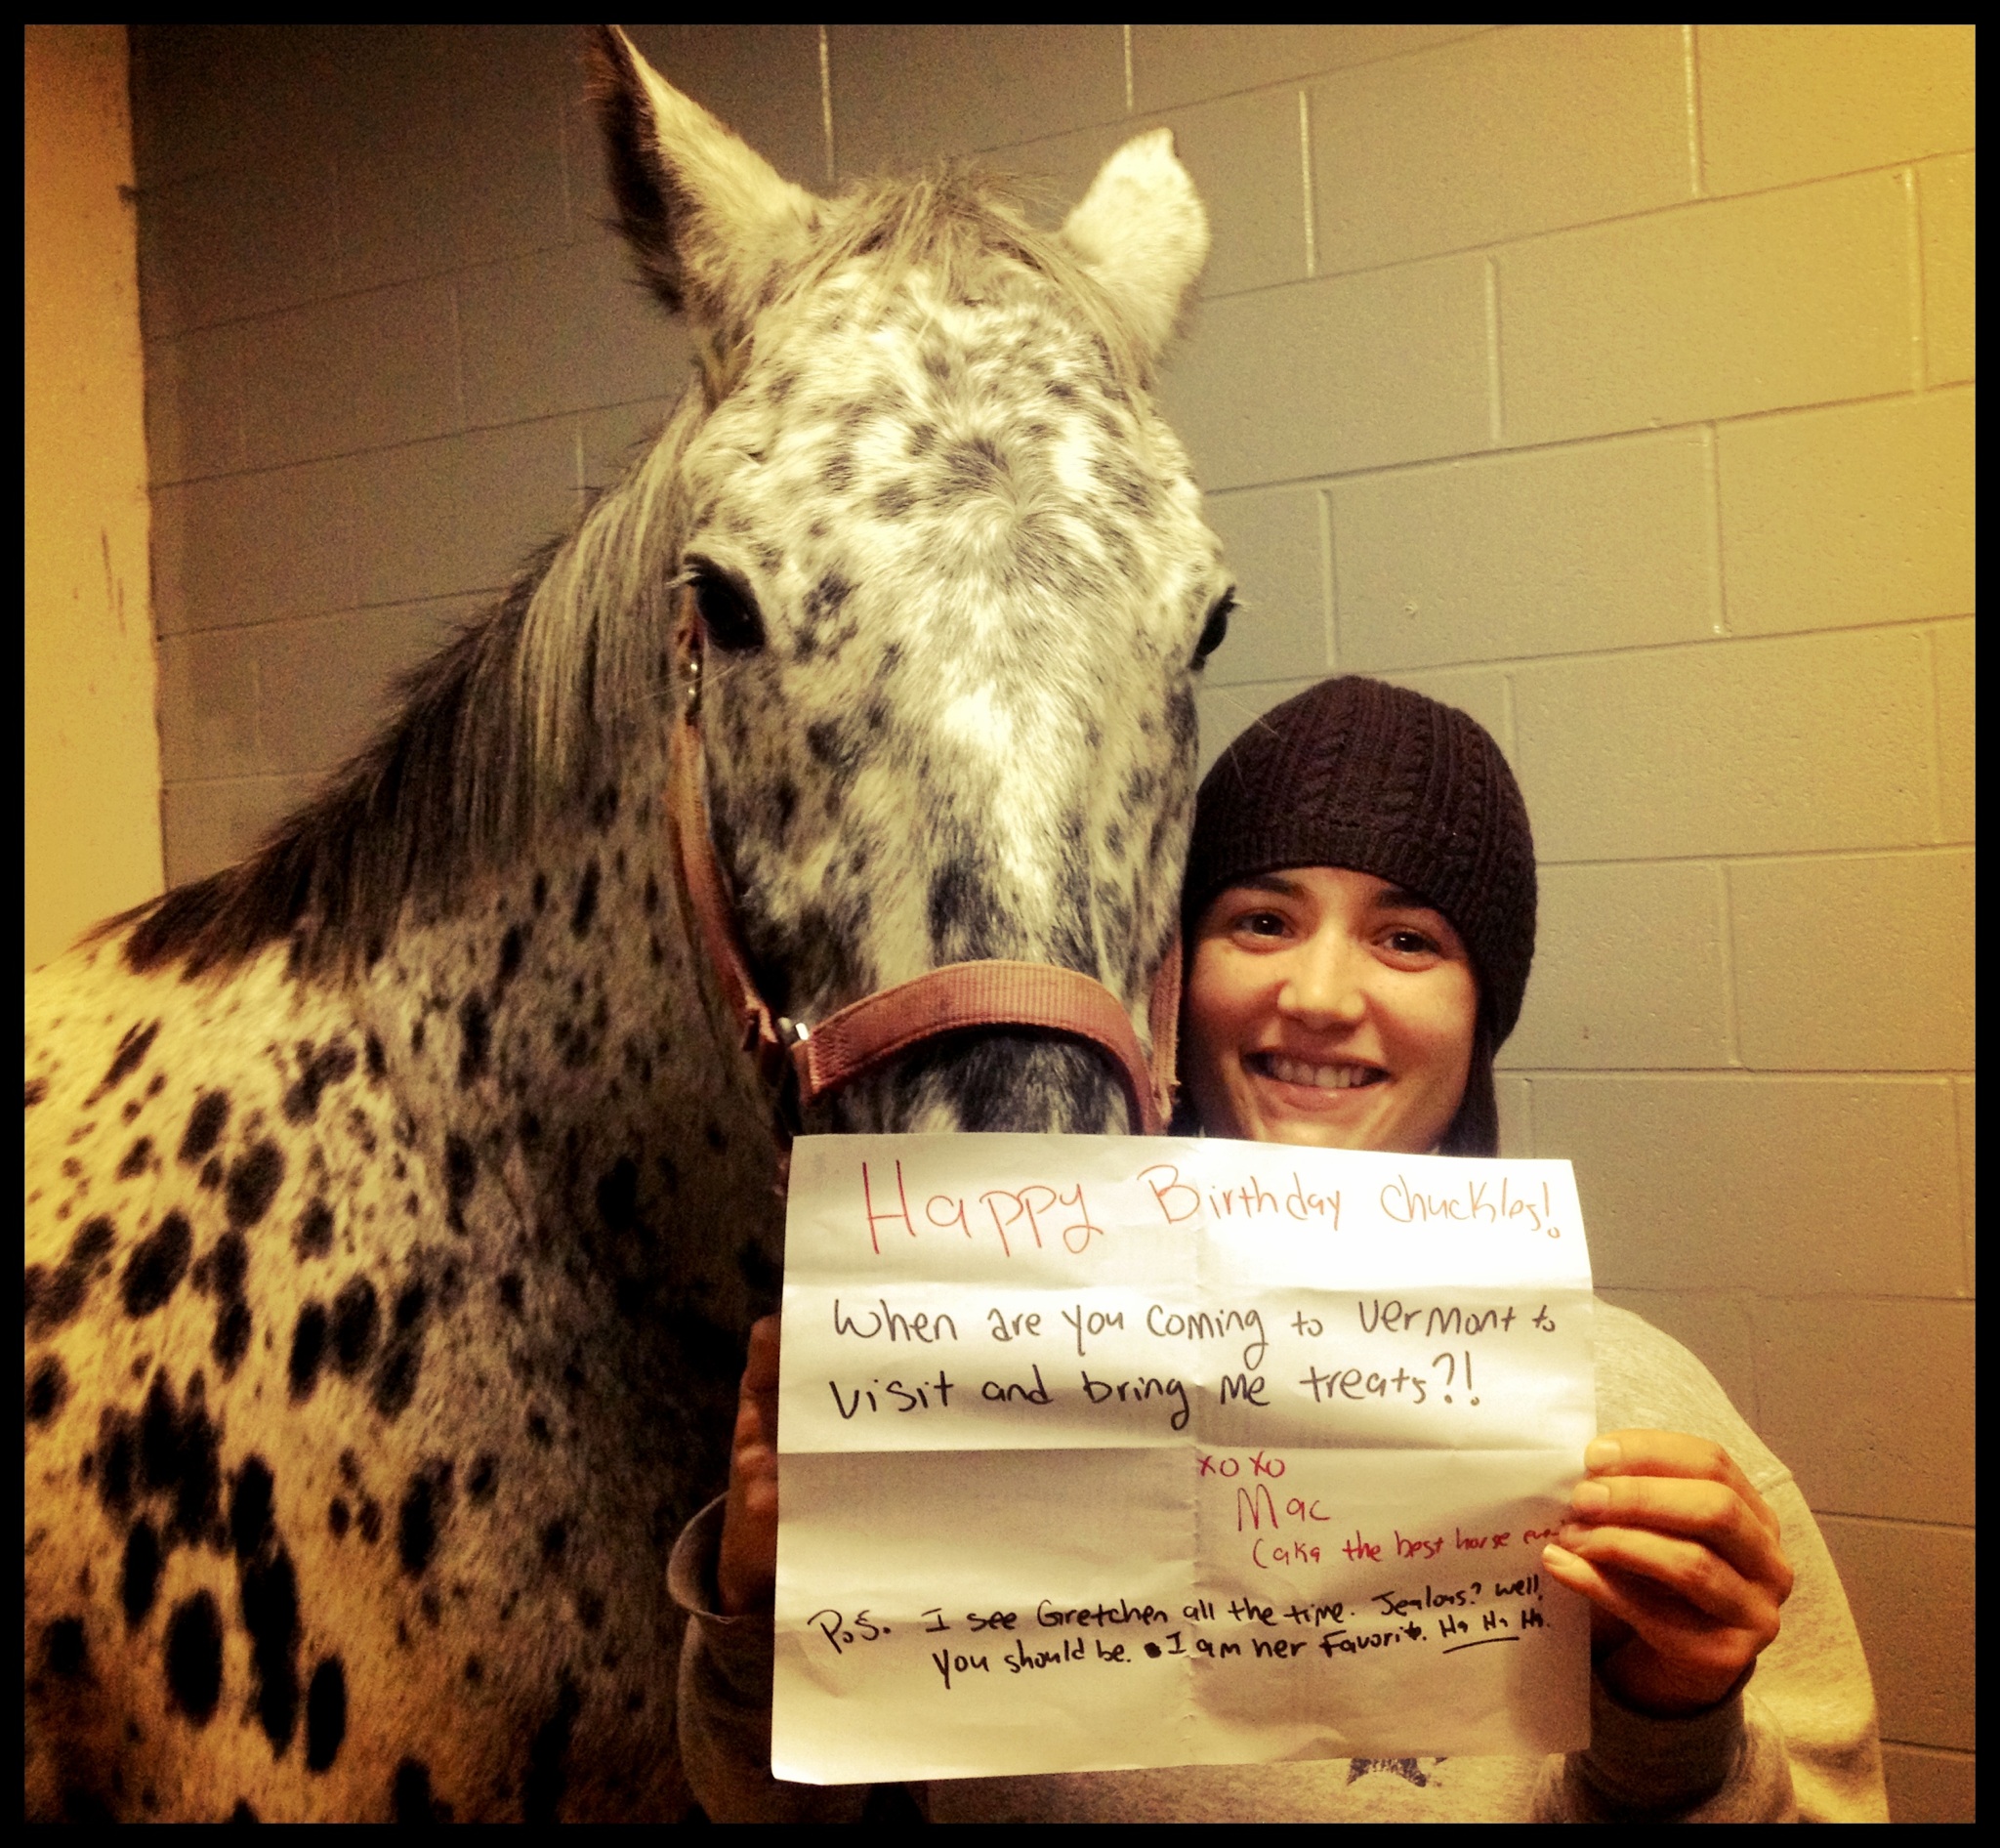 Happy Birthday Chuckles!
When are you coming to Vermont to
visit and bring me treats?!
xoxo
Mac
(aka the best horse
P.S. I see Gretchen all the time. Jealous? Well,
you should be. I am her Favorite. Ha Ha Ha.